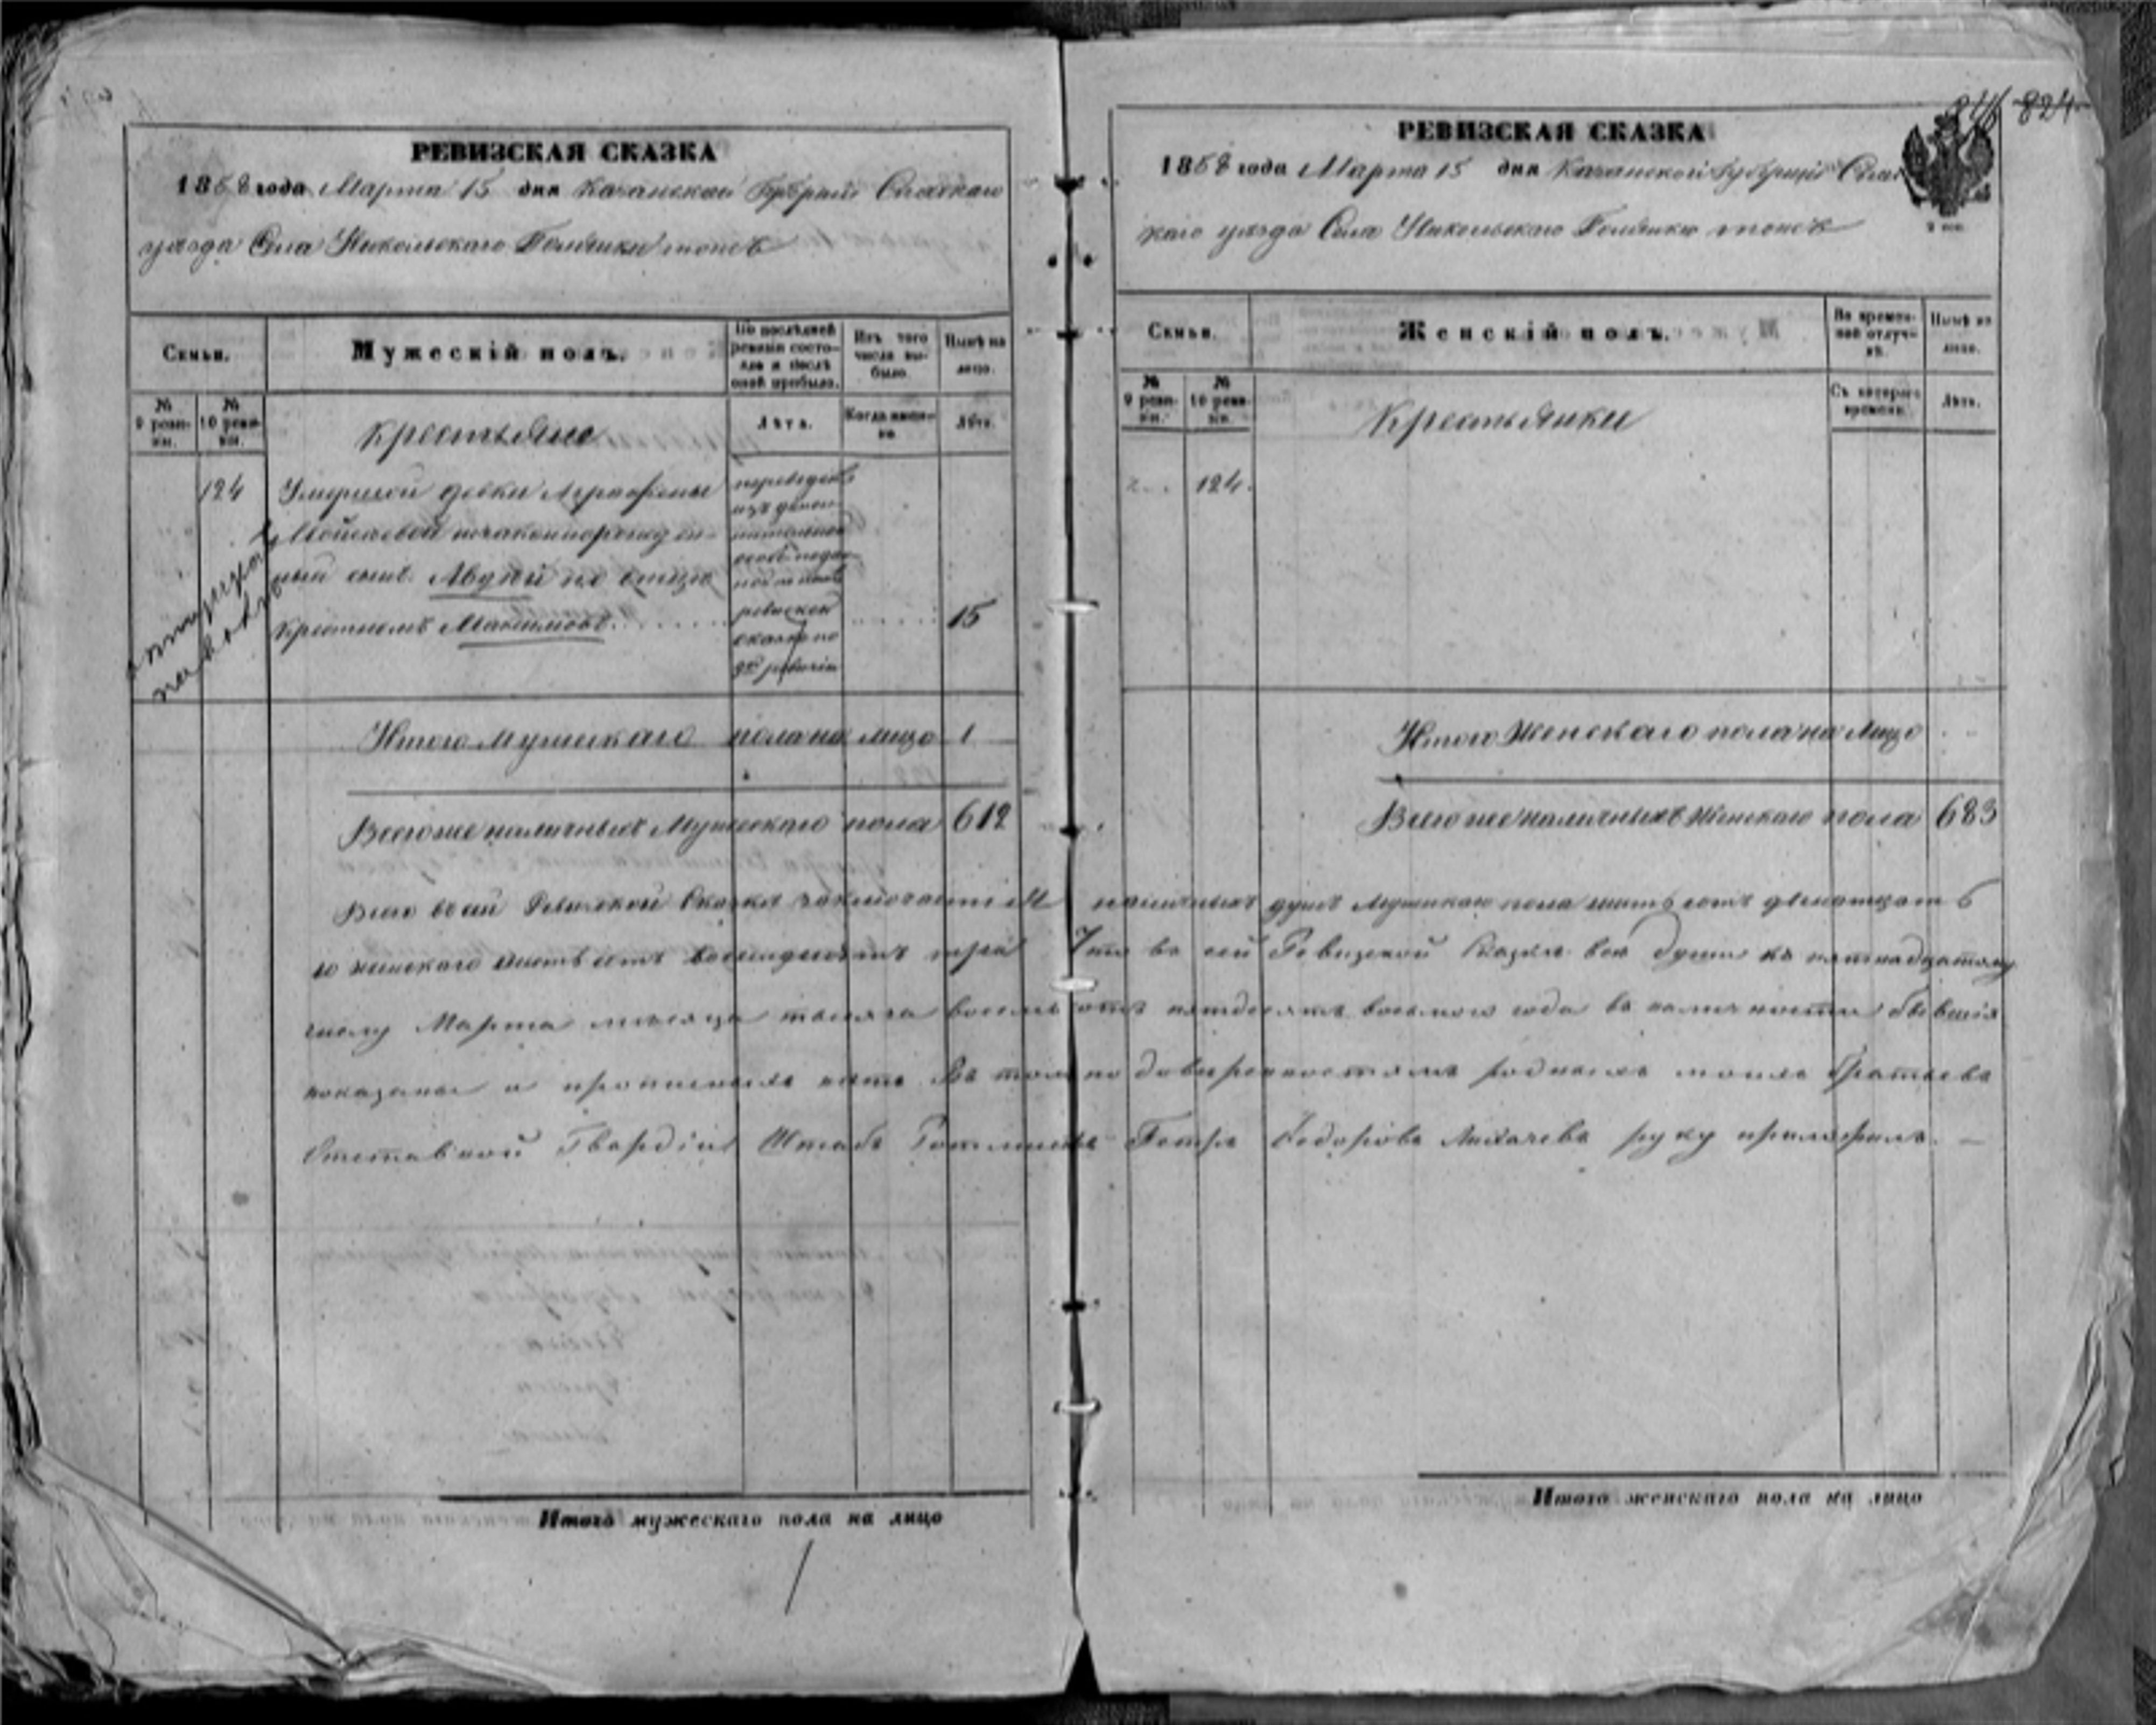 РЕВИЗСКАЯ СКАЗКА
1858 года Марта 15 дня Казанской Губерніи Спаскаго
уезда Села Никольскаго Полянки тожъ
Семьи.
Мужескій полъ.
По послѣдней ревизіи состояло и послѣ оной прибыло.
Изъ того числа выбыло.
Нынѣ на лицо.
№ 9 ревизіи.
№ 10 ревизіи.
Крестьяне
Лѣта.
Когда именно.
Лѣта.
124
Умершей девки Аграфены
Мойсеевой незаконнорожден-
ный сынъ
по отцу
крестному Максимовъ
15
переведенъ
изъ допол-
нительной
особо подан-
ной
ревизской
сказке по
9й ревизіи
Итого мужескаго пола на лицо 1
Всего же наличныхъ Мужескаго пола 612
РЕВИЗСКАЯ СКАЗКА
246 824
1858 года Марта 15 дня Казанской Губерніи Спас
каго уезда Села Никольскаго Полянки тожъ
Семьи.
Женскій полъ.
Во временной отлучкѣ.
Нынѣ на лицо.
№ 9 ревизіи.
№ 10 ревизіи.
Крестьянки
Съ котораго времени.
Лѣта.
124.
Итого Женскаго пола на лицо
Всего же наличныхъ Женскаго пола 683
Всего в сей Ревизской Сказке заключается наличныхъ душъ мужескаго пола шесть сотъ двенатцать
женскаго шесть сотъ восемдесятъ три Что въ сей Ревизской Сказке все души къ пятнадцатому
числу Марта месяца тысяча восемь сотъ пятдесятъ восьмого года въ наличности бывшія
показаны и прописныхъ нетъ въ томъ по доверенностямъ родныхъ моихъ братьевъ
Отставной Гвардіи Штабъ Ротмистръ Петръ Федоровъ Лихачевъ руку приложилъ. —
Итого мужескаго пола на лицо
1
Итого женскаго пола на лицо